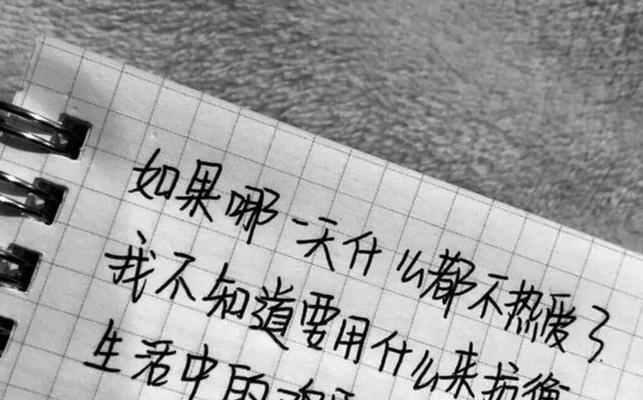 如果哪一天什么都不热爱了
我不知道要用什么来抗衡
生活中的